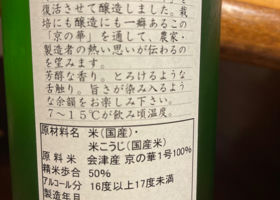 復活させて醸造しました。栽
培にも醸造にも一癖あるこの
「京の華」を通して、農家・
製造者の熱い思いが伝わるの
を望みます。
芳醇な香り。とろけるような
舌触り。旨さが染み入るよう
な余韻をお楽しみ下さい。
7～15℃が飲み頃温度。
原材料名 米(国産)・
米こうじ(国産米)
原料米 会津産 京の華1号100%
精米歩合 50%
アルコール分 16度以上17度未満
製造年月